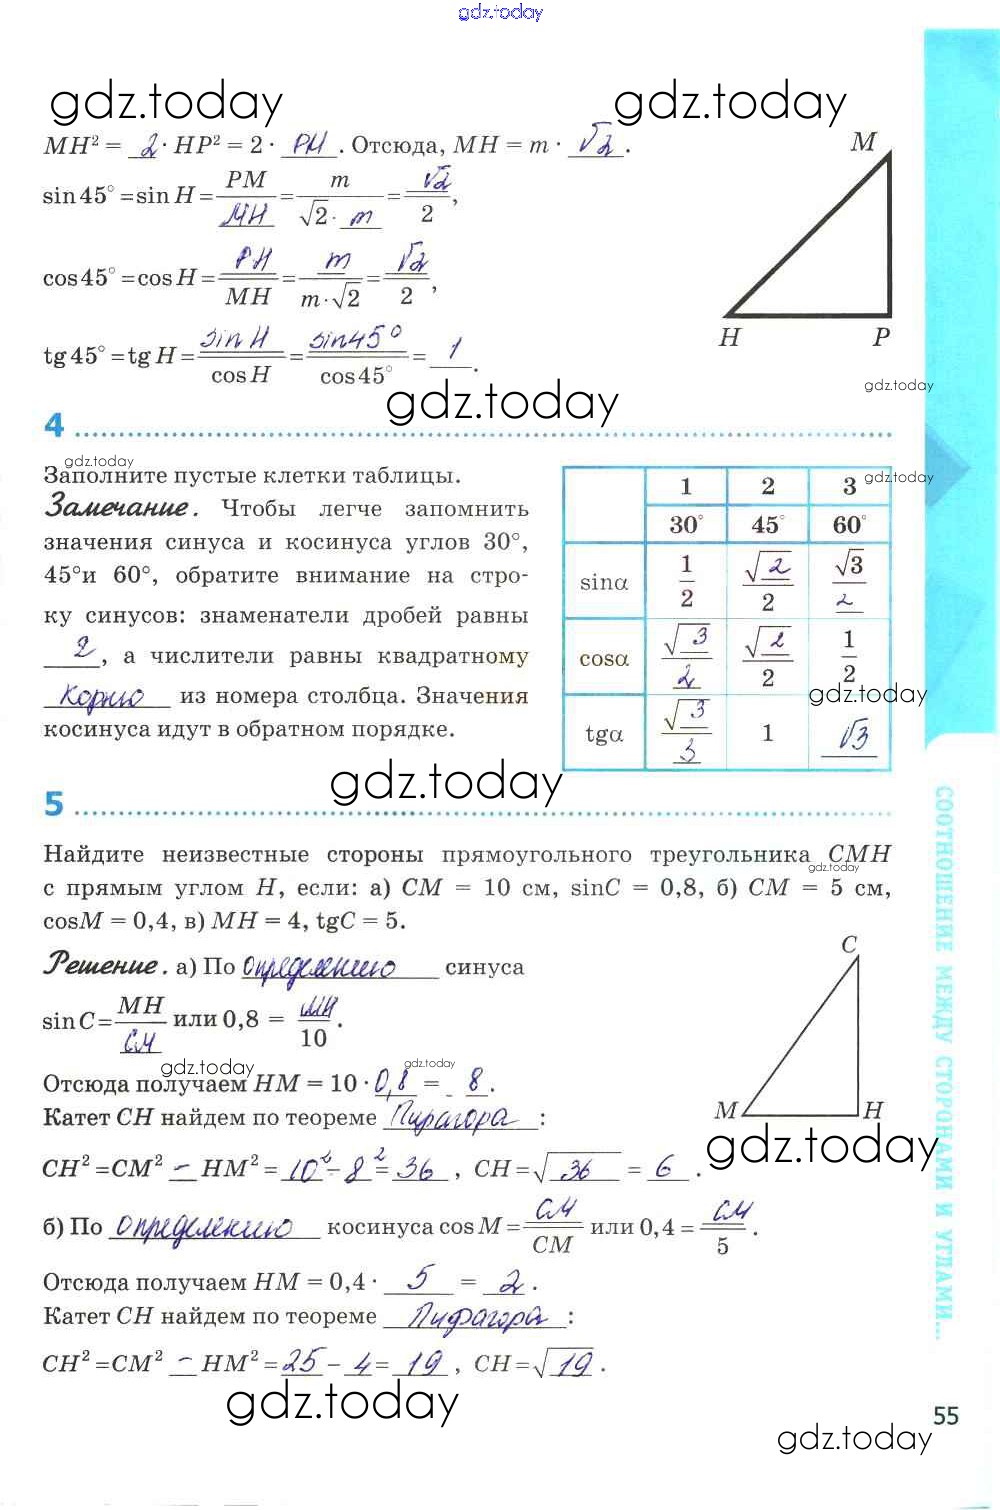 gdz.today
gdz.today gdz.today
MH² = 2 · HP² = 2 · PH . Отсюда, MH = m · √2 .
M
sin 45° = sin H = PM / MH = m / √2 · m = √2 / 2 ,
cos 45° = cos H = PH / MH = m / m · √2 = √2 / 2 ,
H P
tg 45° = tg H = sin H / cos H = sin 45° / cos 45° = 1 .
gdz.today
gdz.today
4
gdz.today
Заполните пустые клетки таблицы.
Замечание. Чтобы легче запомнить
значения синуса и косинуса углов 30°,
45°и 60°, обратите внимание на стро-
ку синусов: знаменатели дробей равны
2 , а числители равны квадратному
корню из номера столбца. Значения
косинуса идут в обратном порядке.
gdz.today
1 2 3
30° 45° 60°
sinα 1/2 √2/2 √3/2
cosα √3/2 √2/2 1/2
gdz.today
tgα √3/3 1 √3
gdz.today
5
Найдите неизвестные стороны прямоугольного треугольника CMH
gdz.today
с прямым углом H, если: а) CM = 10 см, sinC = 0,8, б) CM = 5 см,
cosM = 0,4, в) MH = 4, tgC = 5.
Решение. а) По определению синуса
C
sin C = MH / CM или 0,8 = MH / 10 .
gdz.today gdz.today
Отсюда получаем HM = 10 · 0,8 = 8 .
Катет CH найдем по теореме Пифагора :
M H
gdz.today
CH² = CM² − HM² = 10² − 8² = 36 , CH = √36 = 6 .
б) По определению косинуса cos M = CM / CM или 0,4 = CM / 5 .
Отсюда получаем HM = 0,4 · 5 = 2 .
Катет CH найдем по теореме Пифагора :
CH² = CM² − HM² = 25 − 4 = 19 , CH = √19 .
gdz.today
СООТНОШЕНИЕ МЕЖДУ СТОРОНАМИ И УГЛАМИ...
55
gdz.today